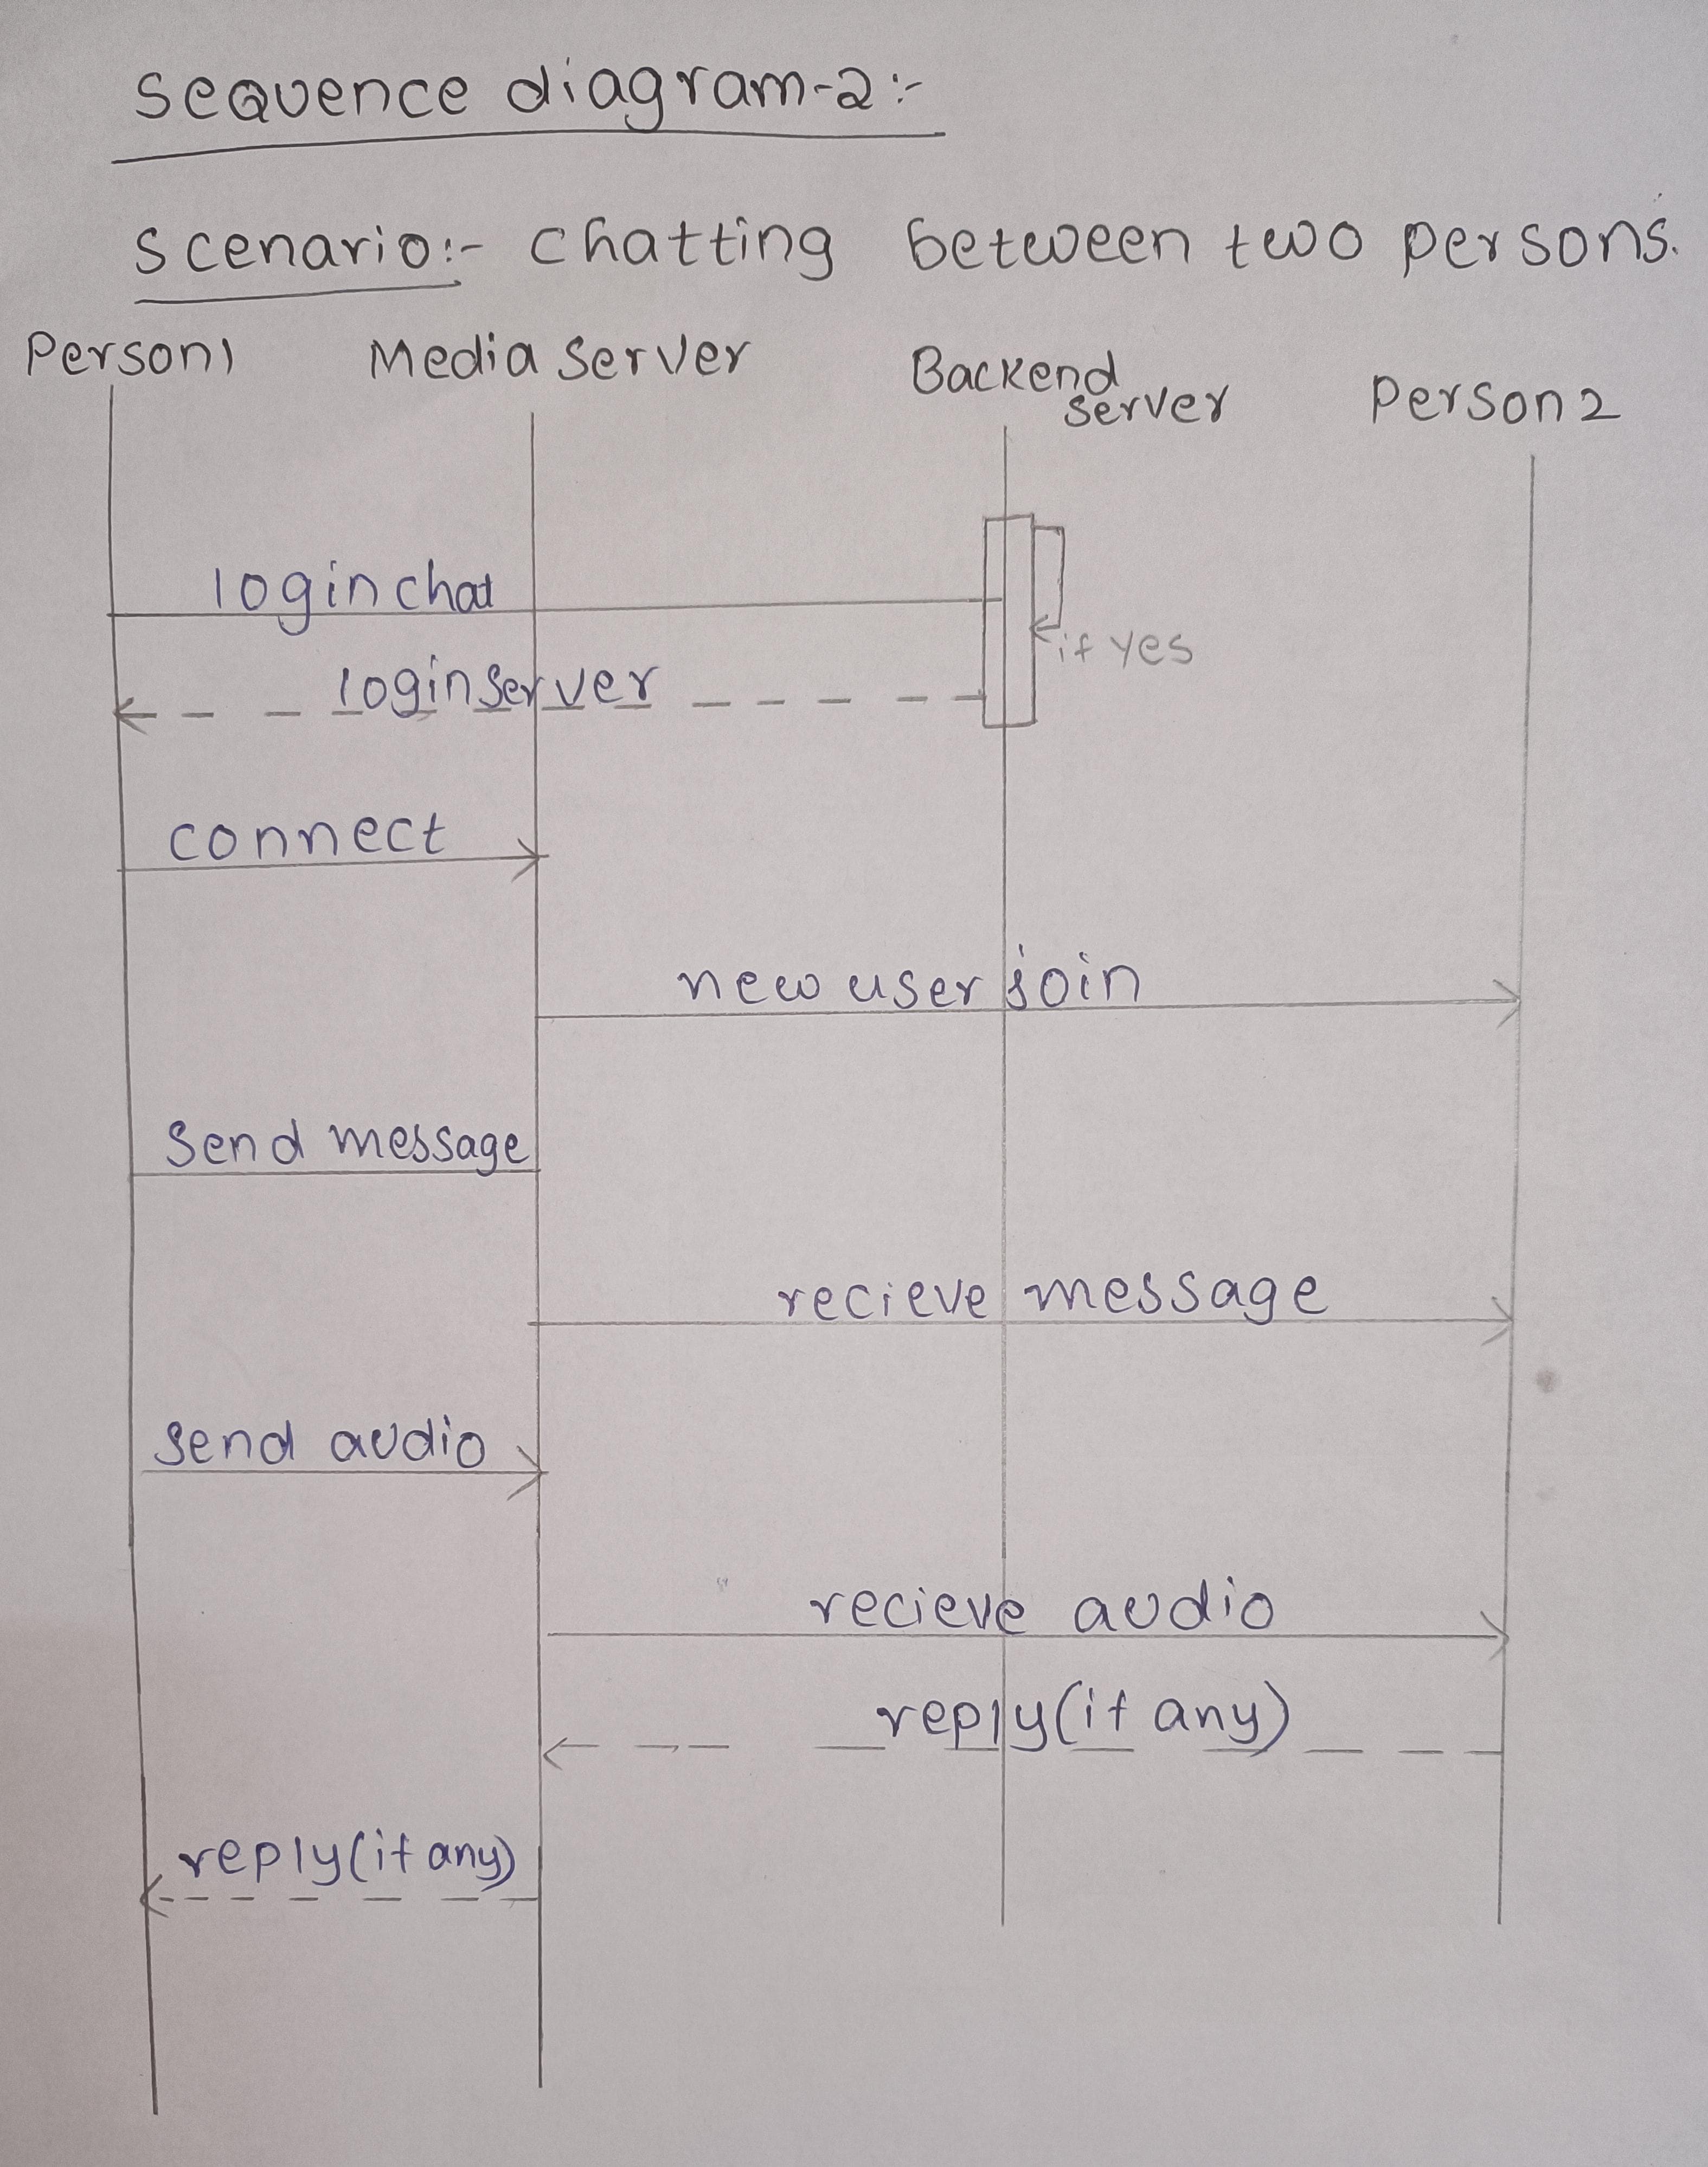 Sequence diagram-2:-
Scenario:- Chatting between two persons.
Person1 Media Server Backend server Person2
login chat
if yes
login server
connect
new user join
Send message
recieve message
Send audio
recieve audio
reply(if any)
reply(if any)